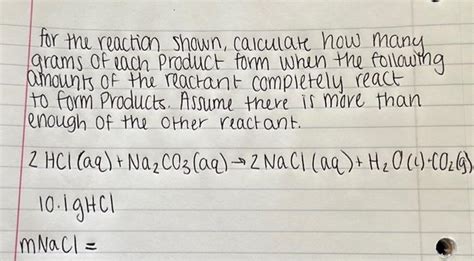 for the reaction shown, calculate how many
grams of each Product form when the following
amounts of the reactant completely react
to form Products. Assume there is more than
enough of the other reactant.
2 HCl (aq) + Na₂CO₃ (aq) → 2 NaCl (aq) + H₂O (l) + CO₂ (g)
10.1gHCl
mNaCl =